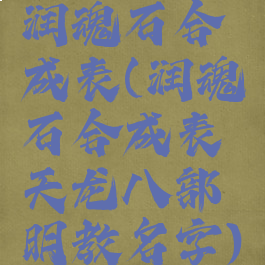 润魂石合
成表(润魂
石合成表
天龙八部
明教名字)